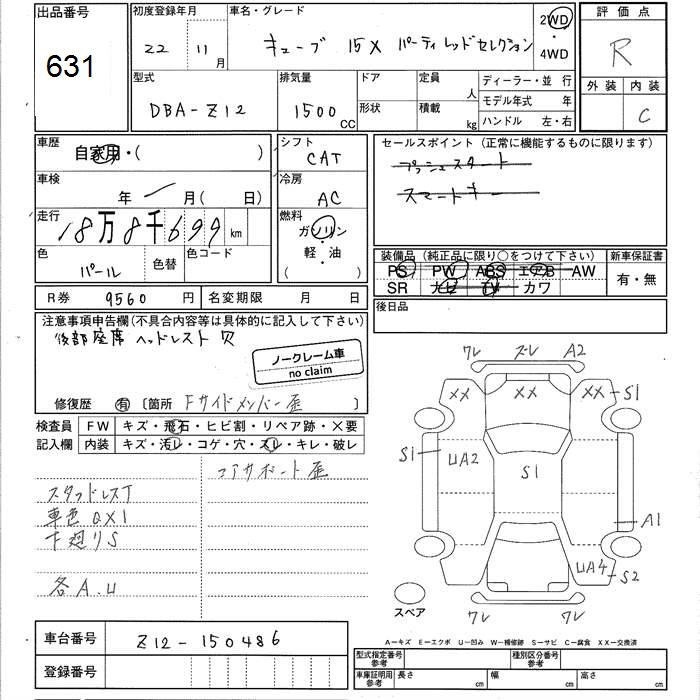 出品番号
631
初度登録年月
22 年 11 月
車名・グレード
キューブ 15X パーティレッドセレクション
2WD
・
4WD
評価点
R
外装 内装
C
型式
DBA-Z12
排気量
1500 CC
ドア
形状
定員
人
積載
kg
ディーラー・並 行
モデル年式 年
ハンドル 左・右
車歴
自家用・( )
シフト
CAT
セールスポイント(正常に機能するものに限ります)
プッシュスタート
スマートキー
車検
年 月( 日)
冷房
AC
走行
18万8千699 km
燃料
ガソリン
・
軽・油
( )
色
パール
色替
色コード
装備品(純正品に限り○をつけて下さい)
PS PW ABS エアB AW
SR ナビ TV カワ
新車保証書
有・無
R券 9560 円
名変期限 月 日
後日品
注意事項申告欄(不具合内容等は具体的に記入して下さい)
後部座席 ヘッドレスト 穴
ノークレーム車
no claim
修復歴 有 〔箇所 Fサイドメンバー歪
検査員
記入欄
FW キズ・飛石・ヒビ割・リペア跡・×要
内装 キズ・汚レ・コゲ・穴・スレ・キレ・破レ
コアサポート歪
スタッドレスT
車色QX1
下廻りS
各A.U
ワレ ズレ A2
XX XX XX S1
S1 UA2 S1
A1
UA4 S2
スペア
ワレ ワレ
A-キズ E-エクボ U-凹み W-補修跡 S-サビ C-腐食 XX-交換済
車台番号
Z12-150486
登録番号
型式指定番号
参考
種別区分番号
参考
車庫証明用
参考
長さ cm
幅 cm
高さ cm